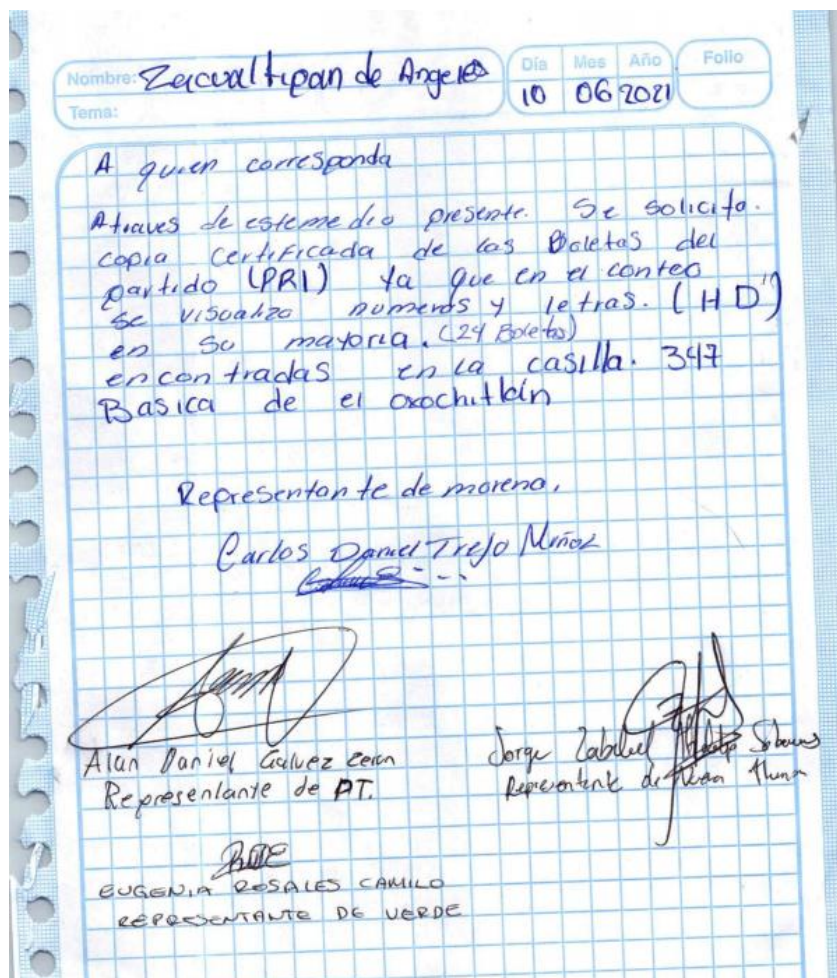 Nombre: Zacualtipan de Angeles
Día Mes Año Folio
10 06 2021
Tema:
A quien corresponda
Atraves de este medio presente. Se solicita.
copia certificada de las Boletas del
partido (PRI) Ya que en el conteo
se visualizo numeros y letras. (H D")
en su mayoria. (24 Boletas)
encontradas en la casilla. 347
Basica de el
Representante de morena.
Carlos Daniel Trejo Muñoz
Alan Daniel Galvez
Representante de PT.
Jorge
Representante de
EUGENIA ROSALES CAMILO
REPRESENTANTE DE VERDE